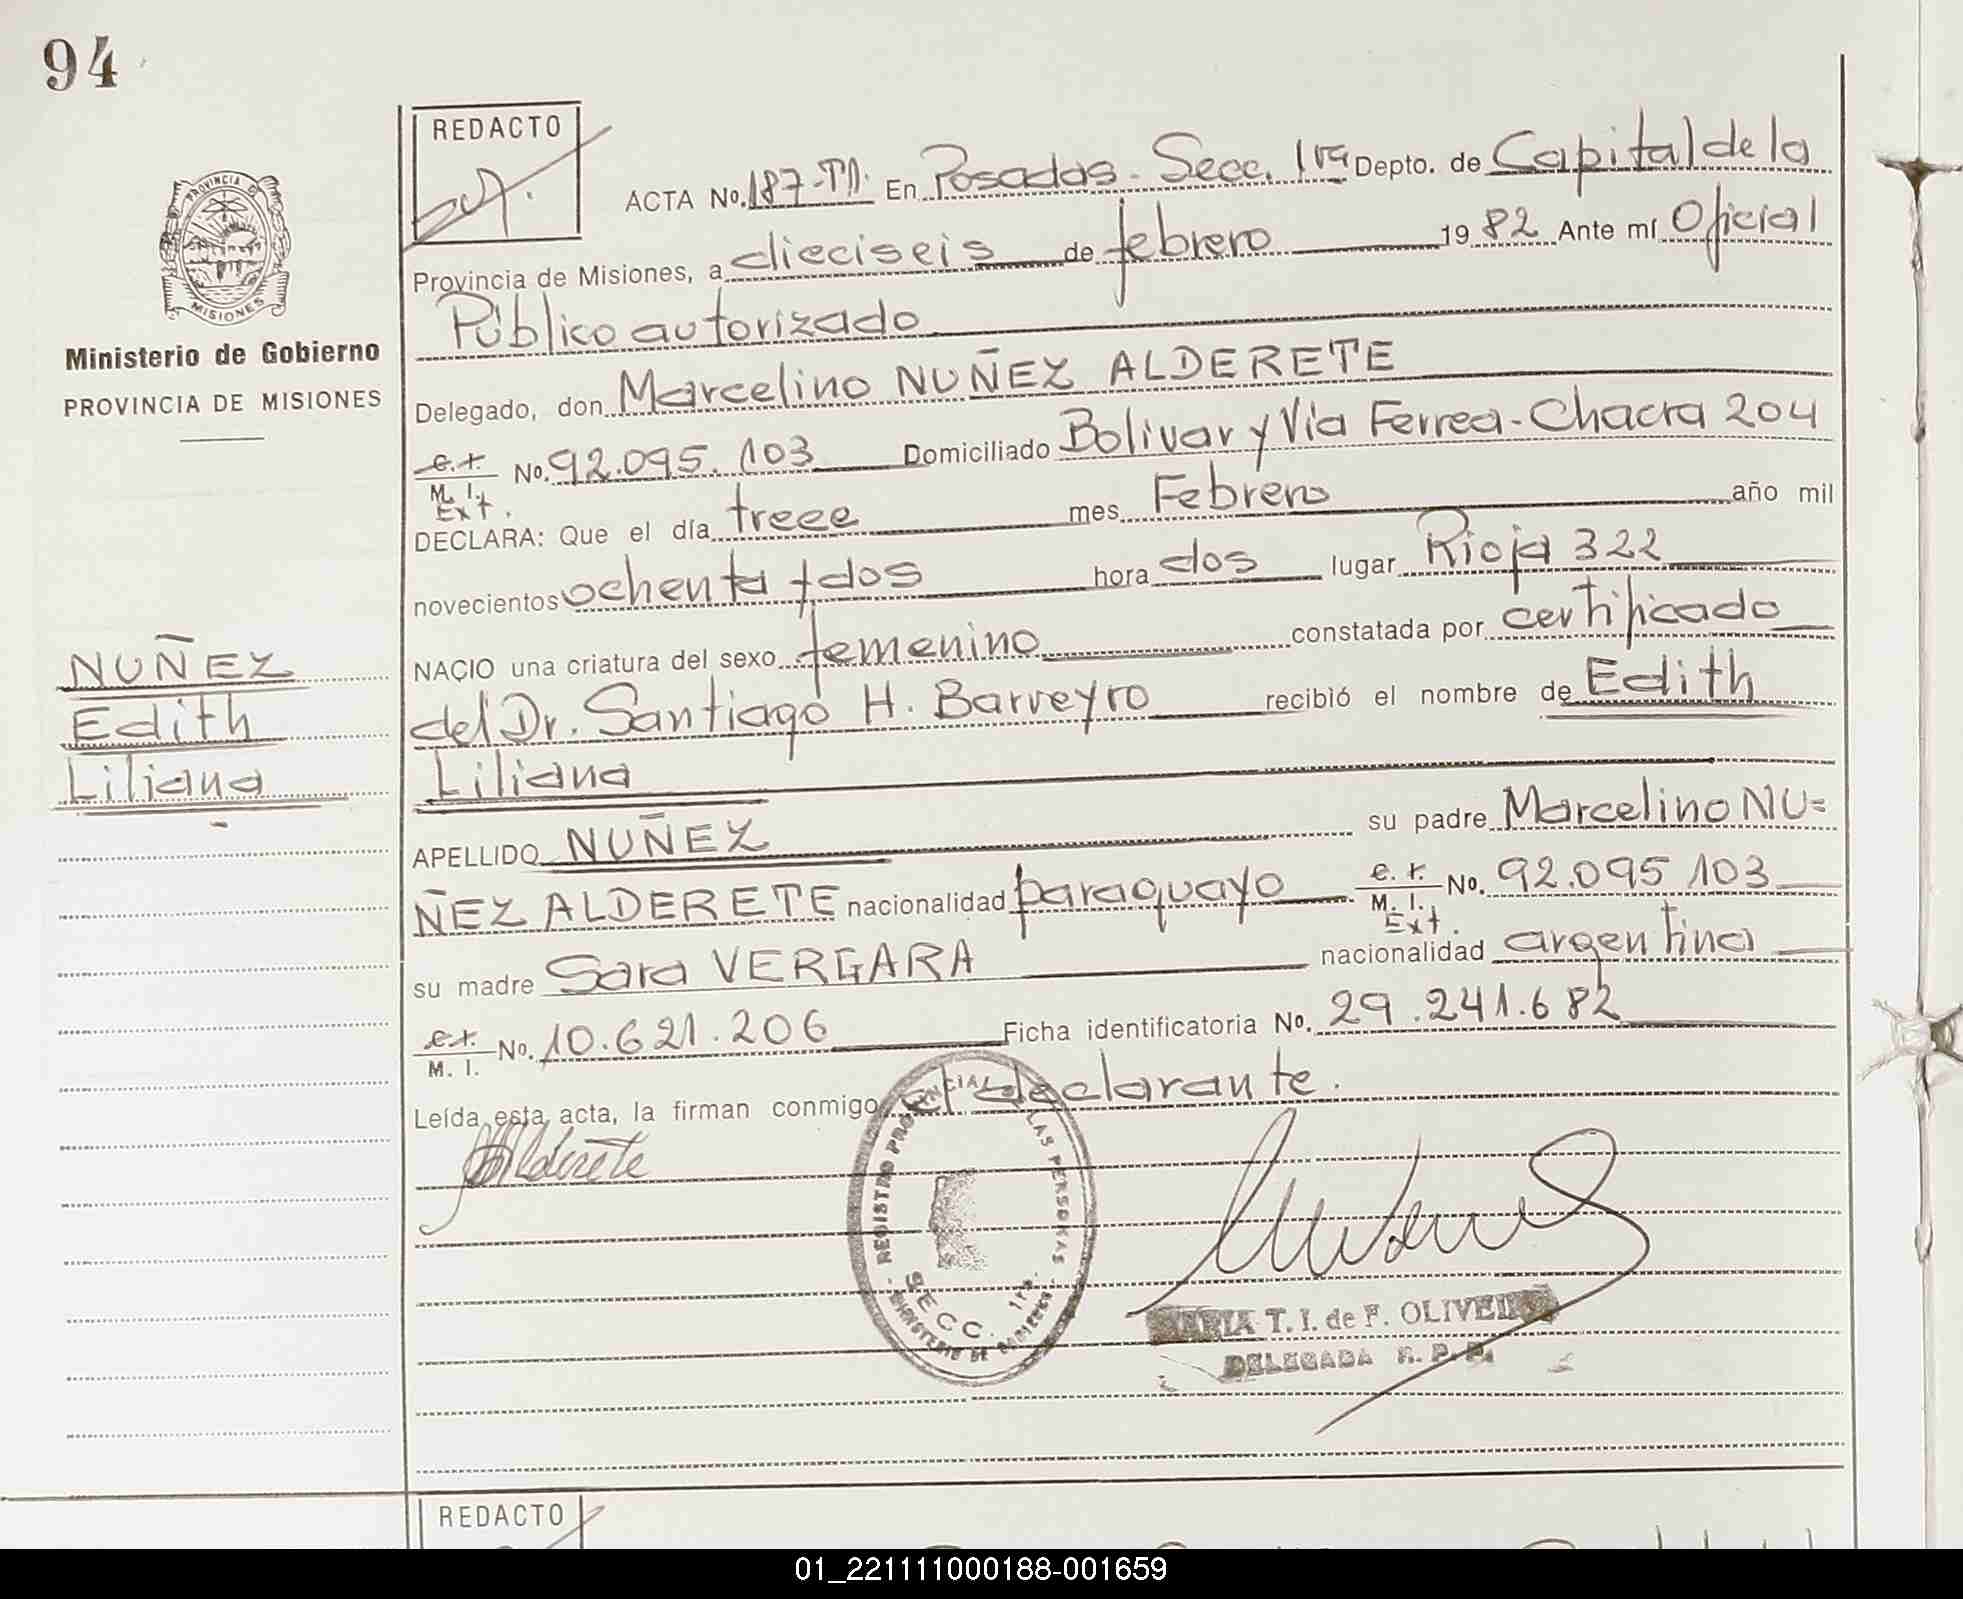 94
REDACTO
ACTA No. 187-TI. En Posadas. Secc. 1ra Depto. de Capital de la
Provincia de Misiones, a dieciseis de febrero 19 82 Ante mí Oficial
Público autorizado
Delegado, don Marcelino NUÑEZ ALDERETE
No. 92.095.103 Domiciliado Bolivar y Via Ferrea - Chacra 204
M. I.
Ext.
DECLARA: Que el día trece mes Febrero año mil
novecientos ochenta y dos hora dos lugar Rioja 322
NACIO una criatura del sexo femenino constatada por certificado
del Dr. Santiago H. Barreyro recibió el nombre de Edith
Liliana
APELLIDO NUÑEZ su padre Marcelino NU=
ÑEZ ALDERETE nacionalidad paraguayo No. 92.095 103
M. I.
Ext.
su madre Sara VERGARA nacionalidad argentina
No. 10.621.206 Ficha identificatoria No. 29.241.682
M. I.
Leída esta acta, la firman conmigo el declarante.
Alderete
REGISTRO PROVINCIAL DE LAS PERSONAS
SECC. 1ra.
MINISTERIO DE GOBIERNO
MARIA T. I. de F. OLIVEIRA
DELEGADA R. P. P.
PROVINCIA DE
MISIONES
Ministerio de Gobierno
PROVINCIA DE MISIONES
NUÑEZ
Edith
Liliana
REDACTO
01_221111000188-001659